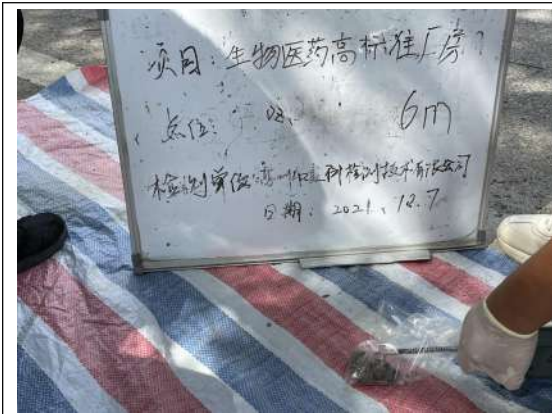 项目:生物医药高标准厂房
点位: 6m
检测单位:
检测技术有限公司
日期:2021.12.7